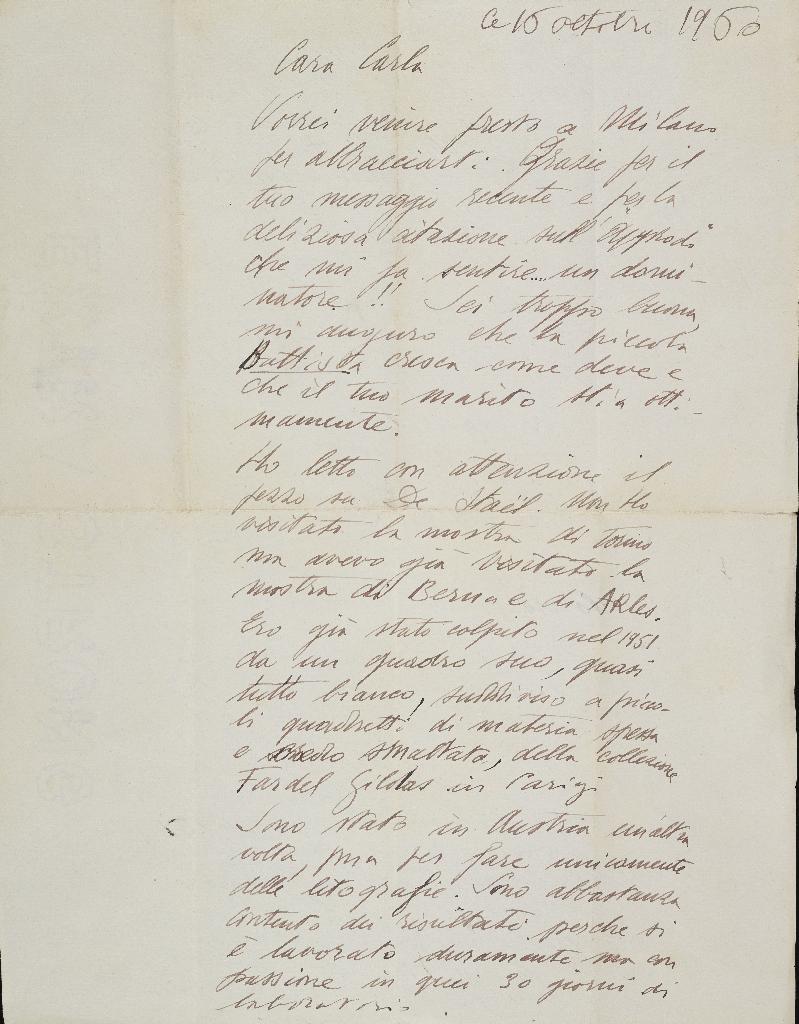 Le 16 octobre 1960
Cara Carla
Vorrei venire presto a Milano
per abbracciarti. Grazie per il
tuo messaggio recente e per la
deliziosa citazione sull'Approdo
che mi fa sentire... un domi-
natore!! Sei troppo buona,
mi auguro che la piccola
Battista cresca come deve e
che il tuo marito stia otti-
mamente.
Ho letto con attenzione il
pezzo su De Staël. Non ho
visitato la mostra di Torino
ma avevo già visitato la
mostra di Berna e di ARles.
Ero già stato colpito nel 1951
da un quadro suo, quasi
tutto bianco, suddiviso a picco-
li quadretti di materia spessa
e smaltata, della collezione
Fardel Gildas in Parigi
Sono stato in Austria un'altra
volta, ma per fare unicamente
delle litografie. Sono abbastanza
contento dei risultati perche si
è lavorato duramente ma con
passione in quei 30 giorni di
laboratorio.